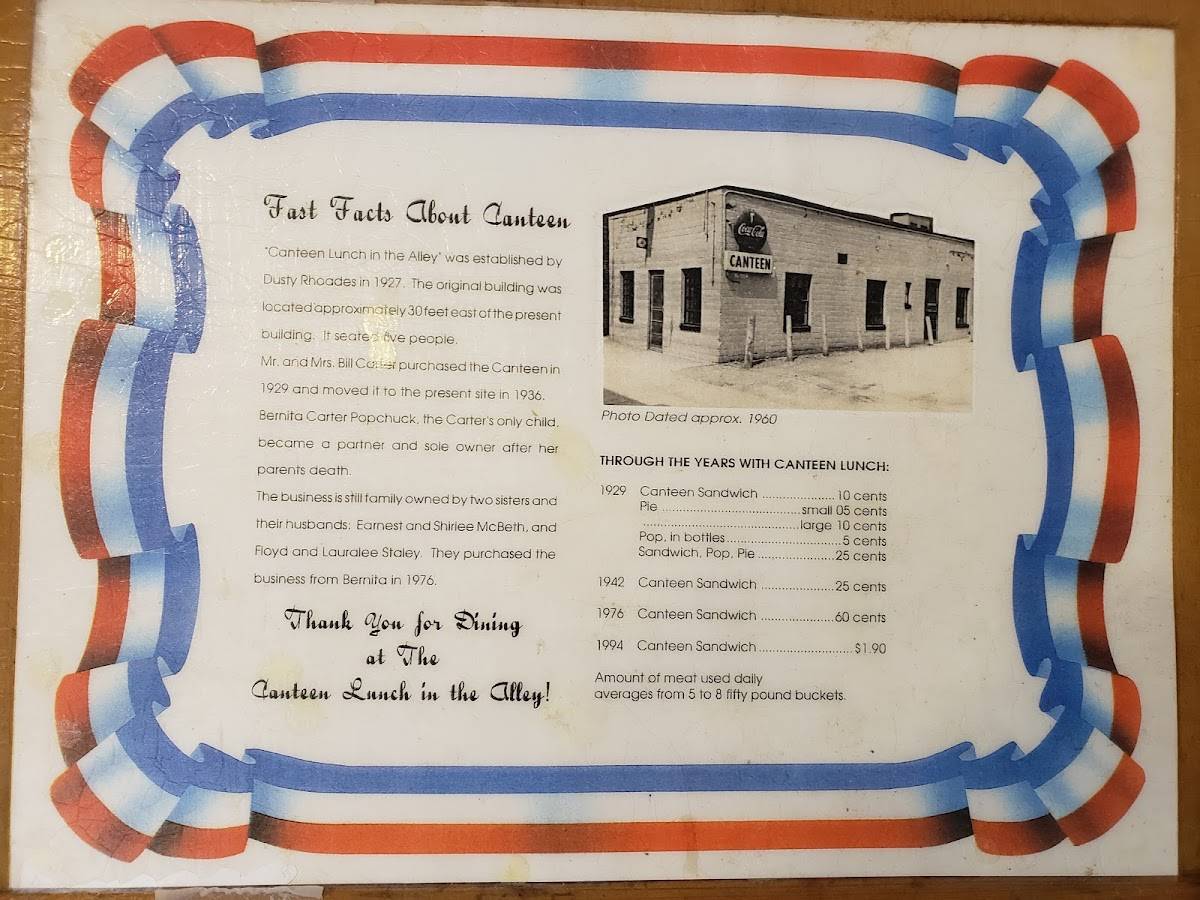 Fast Facts About Canteen
"Canteen Lunch in the Alley" was established by
Dusty Rhoades in 1927. The original building was
located approximately 30 feet east of the present
building. It seated five people.
Mr. and Mrs. Bill Carter purchased the Canteen in
1929 and moved it to the present site in 1936.
Bernita Carter Popchuck, the Carter's only child,
became a partner and sole owner after her
parents death.
The business is still family owned by two sisters and
their husbands: Earnest and Shirlee McBeth, and
Floyd and Lauralee Staley. They purchased the
business from Bernita in 1976.
Thank You for Dining
at The
Canteen Lunch in the Alley!
Coca-Cola
CANTEEN
Photo Dated approx. 1960
THROUGH THE YEARS WITH CANTEEN LUNCH:
1929 Canteen Sandwich ...................... 10 cents
Pie ..........................................small 05 cents
...............................................large 10 cents
Pop, in bottles...................................5 cents
Sandwich, Pop, Pie........................25 cents
1942 Canteen Sandwich ......................25 cents
1976 Canteen Sandwich ......................60 cents
1994 Canteen Sandwich............................$1.90
Amount of meat used daily
averages from 5 to 8 fifty pound buckets.